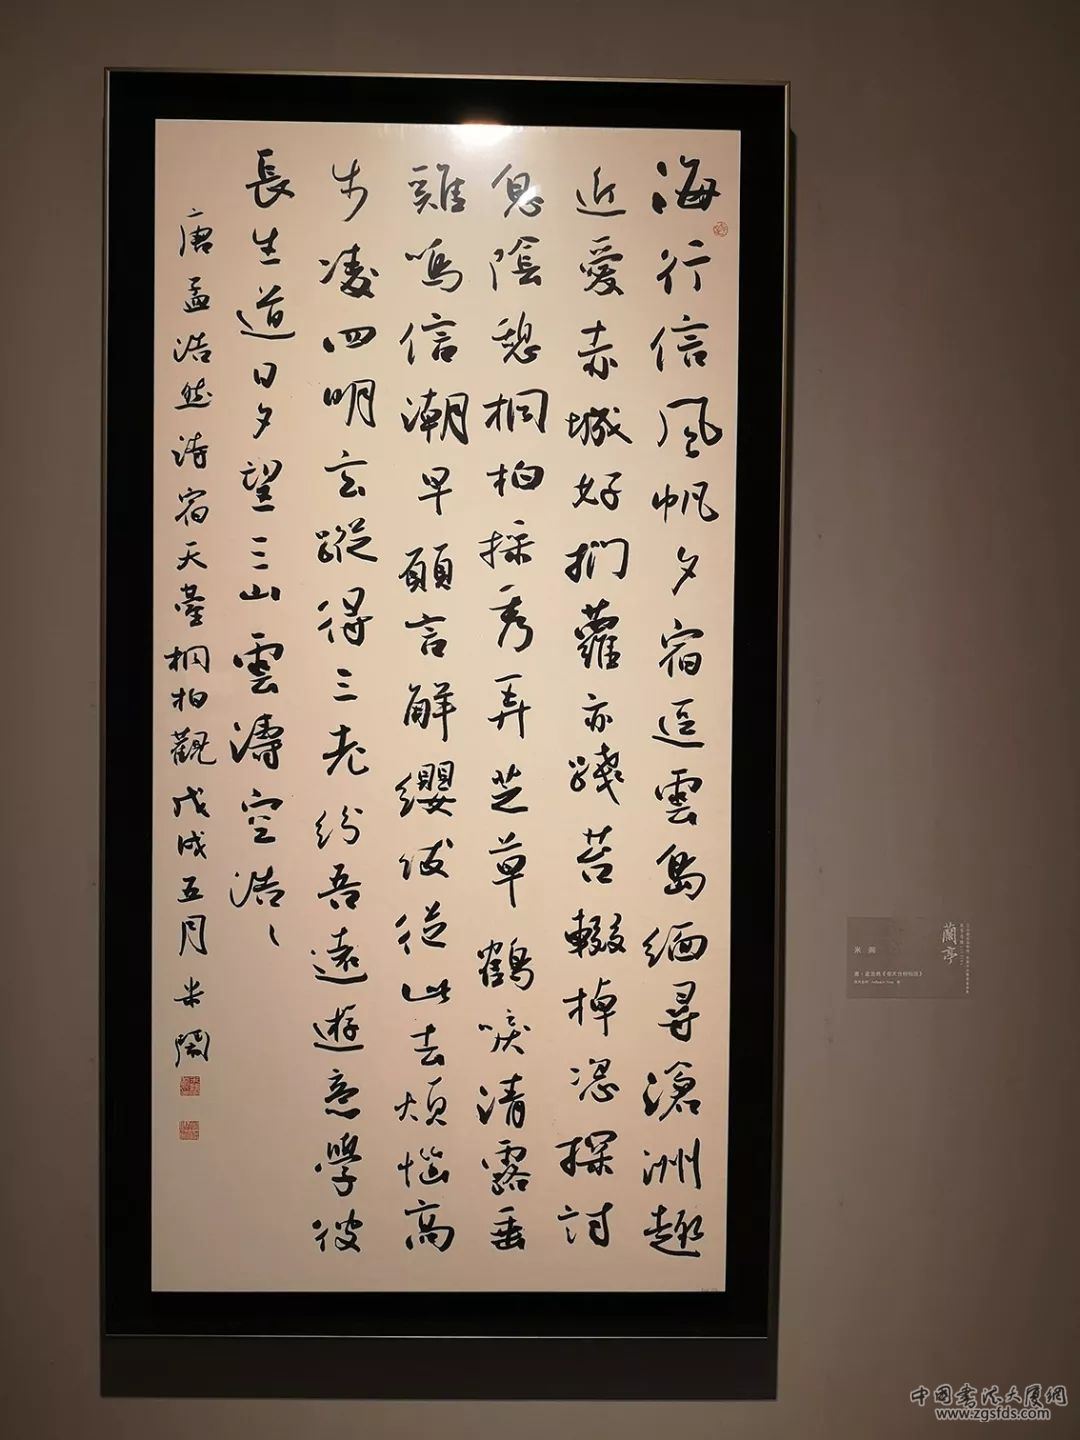 海行信風帆夕宿逗雲島緬尋滄洲趣
近愛赤城好捫蘿亦踐苔輟棹恣探討
息陰憩桐柏採秀弄芝草鶴唳清露垂
雞鳴信潮早願言解纓紱從此去煩惱高
步凌四明玄蹤得三老紛吾遠遊意學彼
長生道日夕望三山雲濤空浩〻
唐孟浩然詩宿天臺桐柏觀戊戌五月米鬧
蘭亭
米 闹
唐·孟浩然《宿天台桐柏观》
中国書法大厦網
www.zgsfds.com